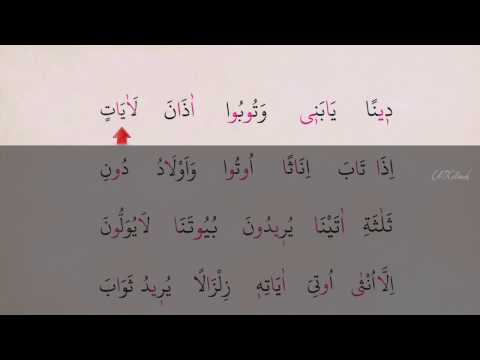 دٖينًا يَابَنٖى وَتُوبُوا اٰذَانَ لَاٰيَاتٍ
اِذَا تَابَ اِنَاثًا اُوتُوا وَاَوْلَادُ دُونِ
ثَلٰثَةِ اٰتَيْنَا يُرٖيدُونَ بُيُوتَنَا لَايُوَلُّونَ
اِلَّا اُنْثٰى اُوتِىَ اٰيَاتِهٖ زِلْزَالًا يُرٖيدُ ثَوَابَ